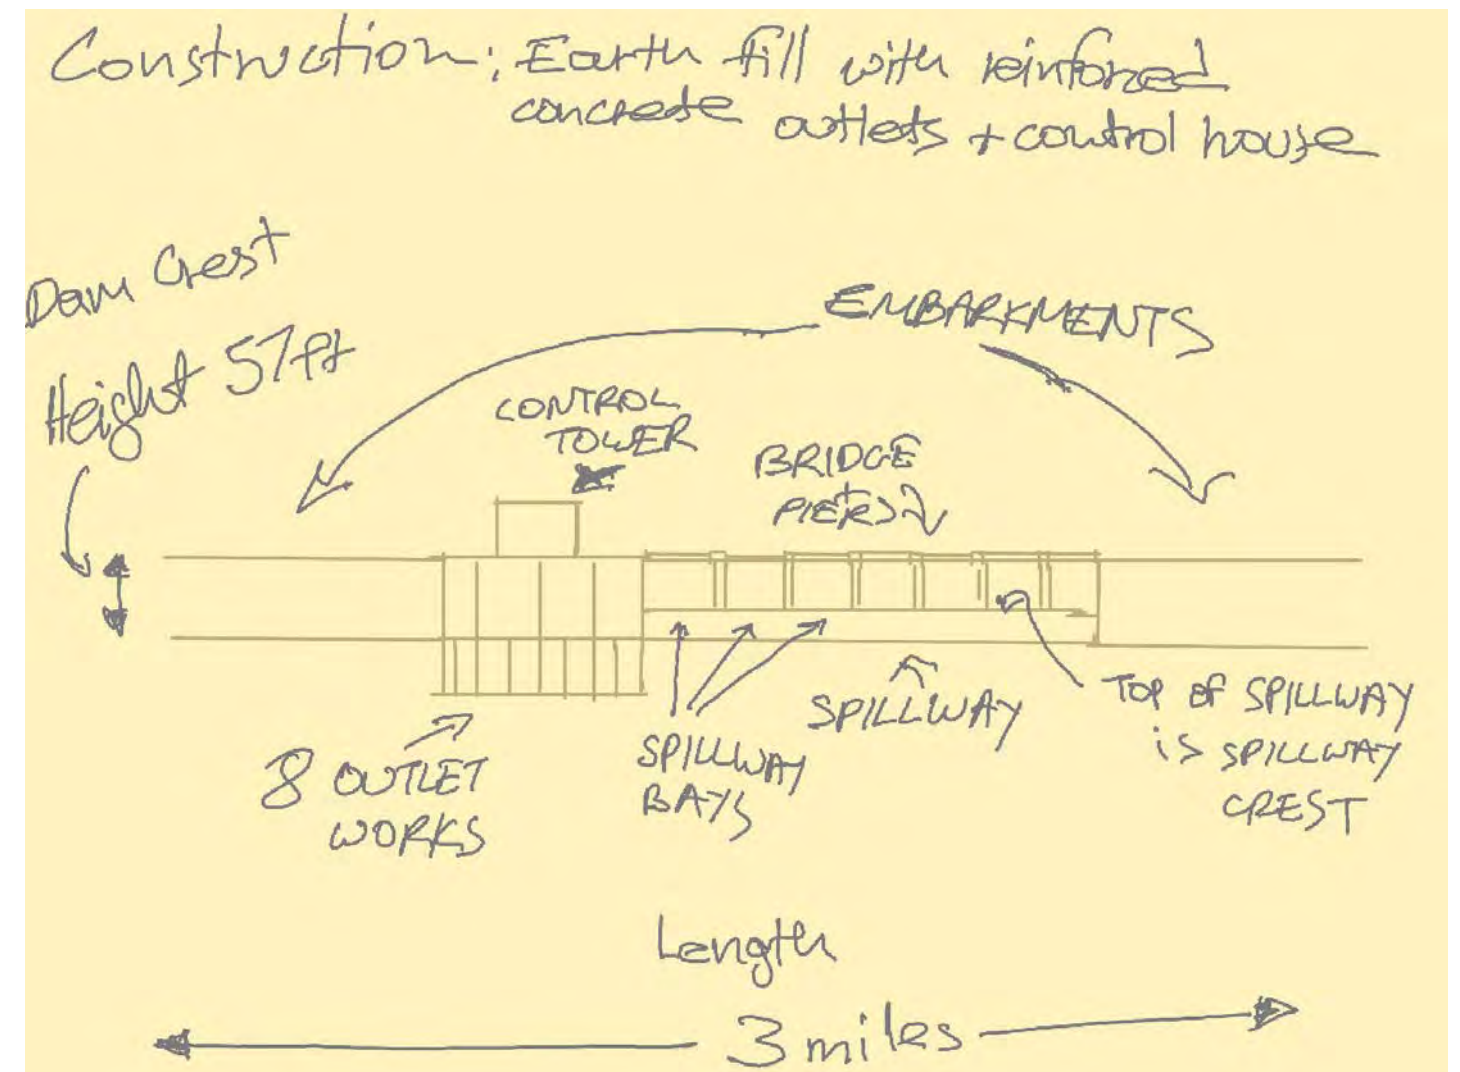 Construction: Earth fill with reinforced
concrete outlets + control house
Dam Crest
Height 57ft
EMBARKMENTS
CONTROL
TOWER
BRIDGE
+
PIERS
8 OUTLET
WORKS
SPILLWAY
BAYS
SPILLWAY
TOP OF SPILLWAY
is SPILLWAY
CREST
Length
3 miles